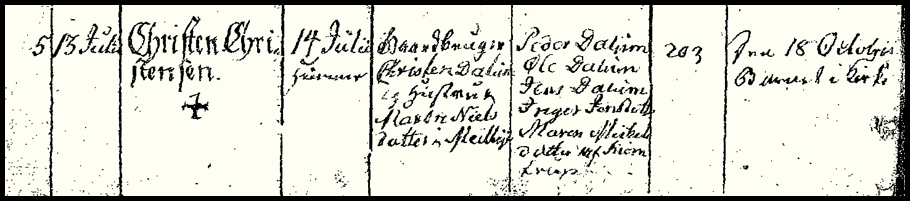 5 13 Juli Christen Chri-
stensen.
14 Julii
hjemme
Gaardbruger
Christen Dalum
og Hustrue
Maren Niels
datter i Meilby
Peder Dalum
Ole Dalum
Jens Dalum
Inger
Maren Mikkels
datter af
203
Den 18 October
Baaret i Kirke